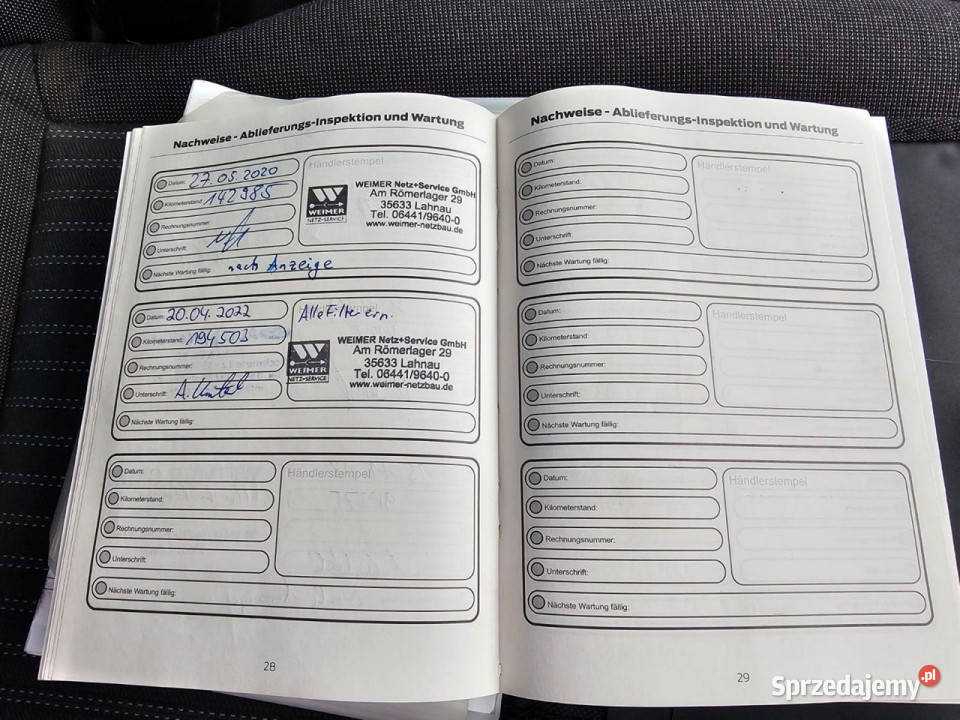 Nachweise - Ablieferungs-Inspektion und Wartung
Datum: 27.05.2020
Kilometerstand: 142985
Rechnungsnummer:
Unterschrift:
Nächste Wartung fällig: nach Anzeige
Händlerstempel
WEIMER
NETZ+SERVICE
WEIMER Netz+Service GmbH
Am Römerlager 29
35633 Lahnau
Tel. 06441/9640-0
www.weimer-netzbau.de
Datum: 20.04.2022
Kilometerstand: 194503
Rechnungsnummer:
Unterschrift:
Nächste Wartung fällig:
Händlerstempel
Alle Filter ern.
WEIMER
NETZ+SERVICE
WEIMER Netz+Service GmbH
Am Römerlager 29
35633 Lahnau
Tel. 06441/9640-0
www.weimer-netzbau.de
Datum:
Kilometerstand:
Rechnungsnummer:
Unterschrift:
Nächste Wartung fällig:
Händlerstempel
28
Nachweise - Ablieferungs-Inspektion und Wartung
Datum:
Kilometerstand:
Rechnungsnummer:
Unterschrift:
Nächste Wartung fällig:
Händlerstempel
Datum:
Kilometerstand:
Rechnungsnummer:
Unterschrift:
Nächste Wartung fällig:
Händlerstempel
Datum:
Kilometerstand:
Rechnungsnummer:
Unterschrift:
Nächste Wartung fällig:
Händlerstempel
29
Sprzedajemy.pl